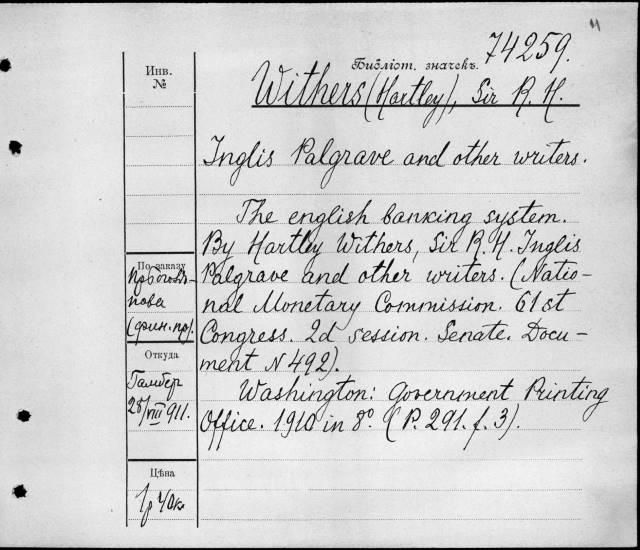 74259.
Библіот. значекъ.
Инв.
№
Withers (Hartley), Sir R. H.
Inglis Palgrave and other writers.
The english banking system.
By Hartley Withers, Sir R. H. Inglis
Palgrave and other writers. (Natio-
nal Monetary Commission. 61 st
Congress. 2d session. Senate. Docu-
ment N 492).
Washington: Government Printing
Office. 1910 in 8°. (P. 291. f. 3).
По заказу
(фин. пр).
Откуда
28/VIII 911.
Цѣна
1р 40к